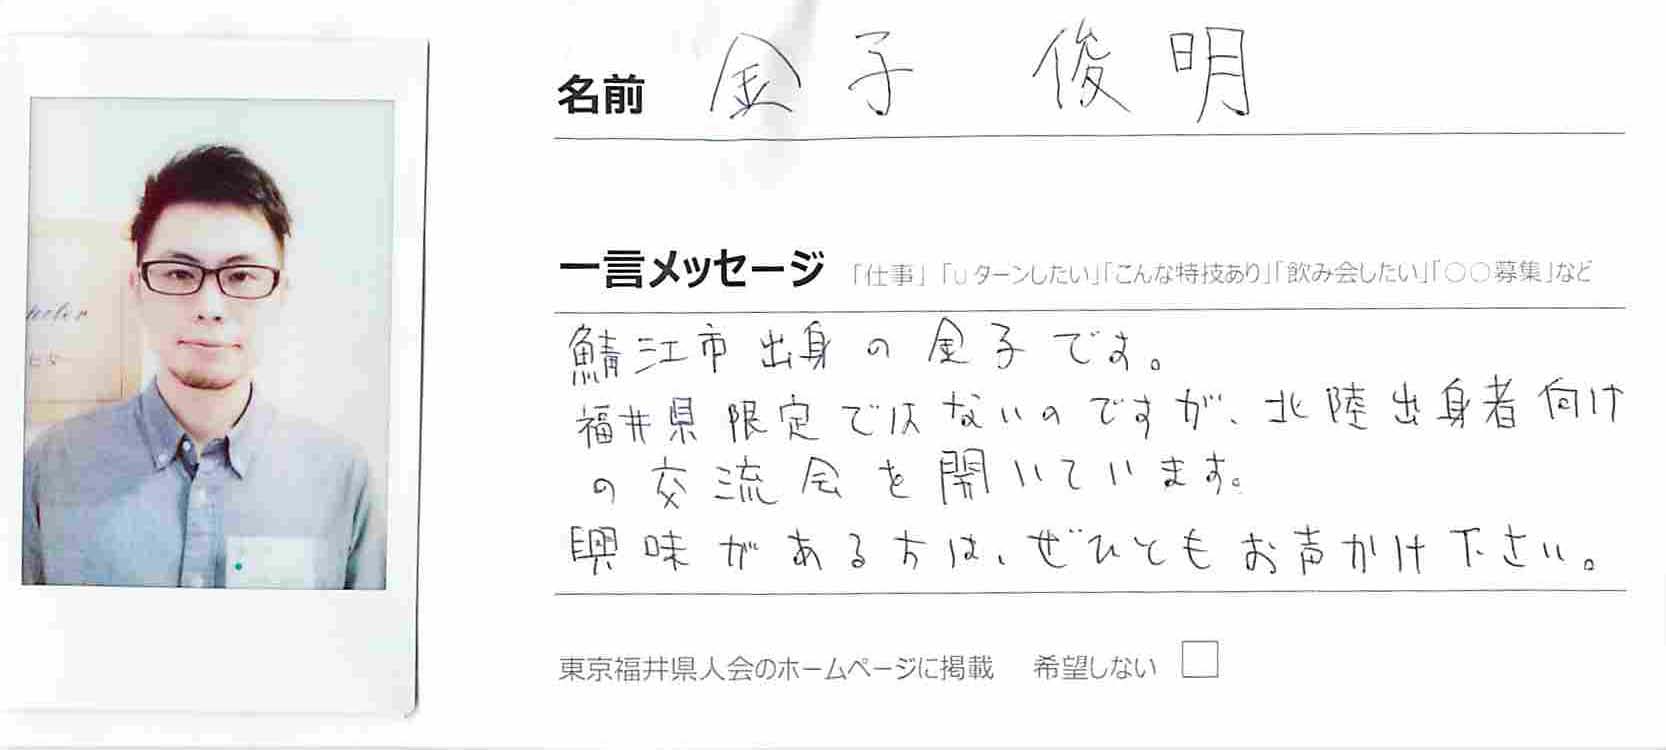 名前 金子 俊明
一言メッセージ 「仕事」「Uターンしたい」「こんな特技あり」「飲み会したい」「〇〇募集」など
鯖江市出身の金子です。
福井県限定ではないのですが、北陸出身者向け
の交流会を開いています。
興味がある方は、ぜひともお声かけ下さい。
東京福井県人会のホームページに掲載 希望しない